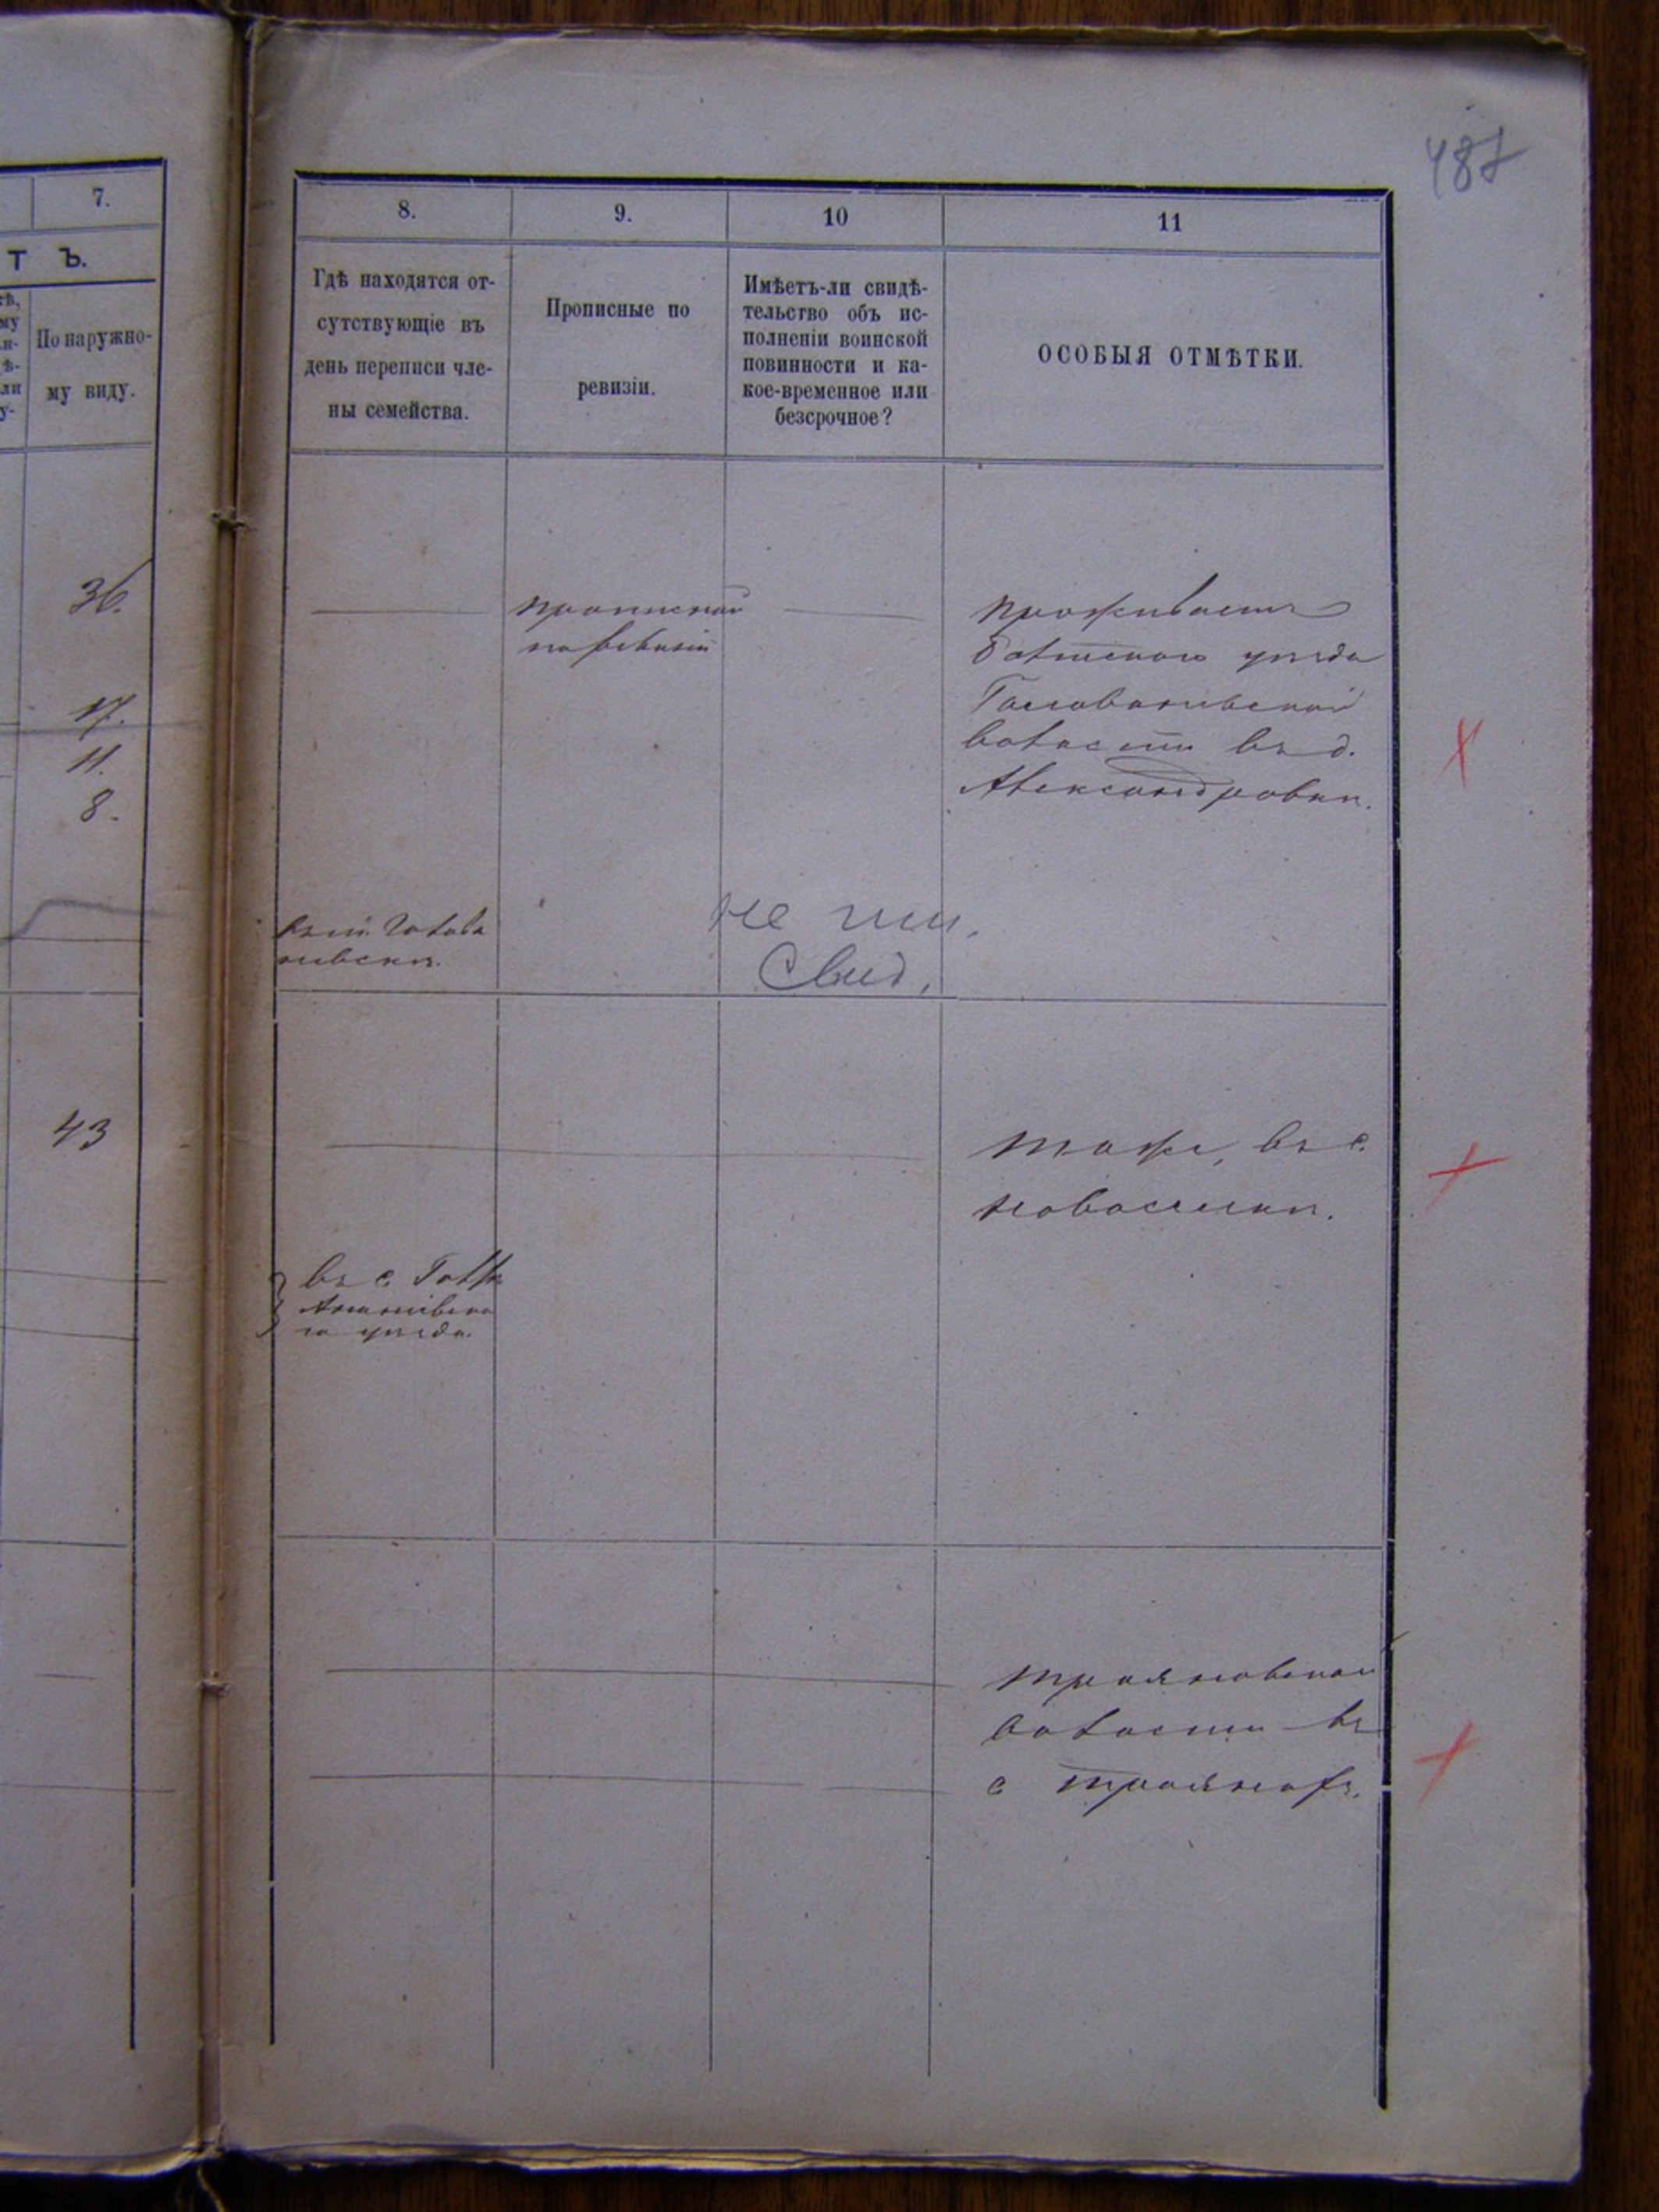 487
7.
Т Ъ.
По наружно-
му виду.
36.
17.
11.
8.
43
8.
9.
10
11
Гдѣ находятся от-
сутствующіе въ
день переписи чле-
ны семейства.
Прописные по
ревизіи.
Имѣетъ-ли свидѣ-
тельство объ ис-
полненіи воинской
повинности и ка-
кое-временное или
безсрочное?
ОСОБЫЯ ОТМѢТКИ.
прописной
по ревизіи
проживаетъ
Балтскаго уѣзда
Голованивской
волости въ д.
Александровки.
въ м. Голова
нивски.
не им.
Свид.
тоже, въ с.
новоселки.
въ с.
Ананивска
го уѣзда.
трояновской
волости въ
с трояновъ.